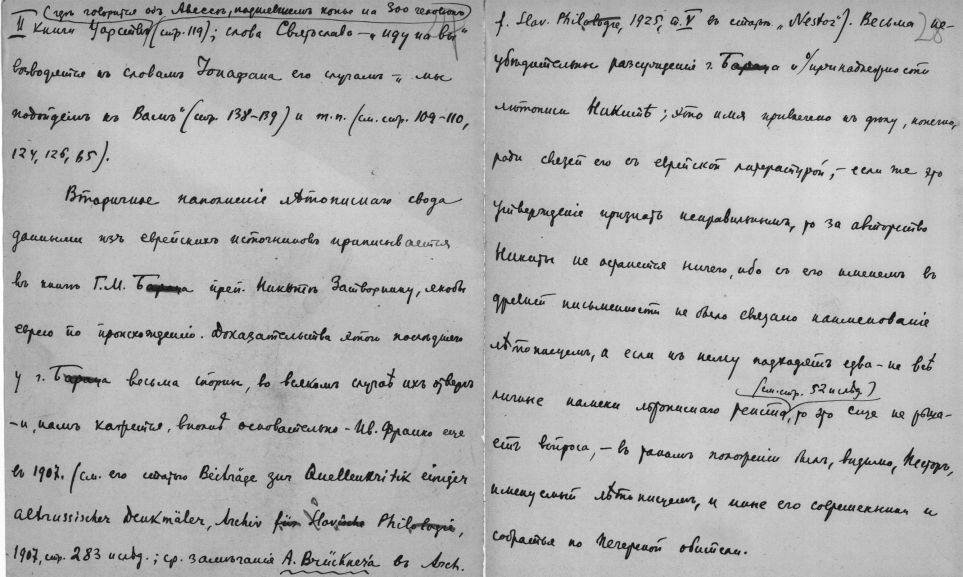 (здѣсь говорится объ Авессѣ, поднявшемъ копье на 300 человѣкъ)
II Книги Царствъ (стр. 119); слова Святослава – „иду на вы"
возводятся къ словамъ Іонафана его слугамъ – „мы
подойдемъ къ Вамъ" (стр. 138–139) и т.п. (см. стр. 109–110,
124, 126, 65).
Вторичное наполненіе лѣтописнаго свода
данными изъ еврейскихъ источниковъ приписывается
въ книгѣ Г.М. Бараца преп. Никитѣ Затворнику, якобы
еврею по происхожденію. Доказательства этого послѣдняго
у г. Бараца весьма спорны, во всякомъ случаѣ ихъ отвергъ
– и, намъ кажется, вполнѣ основательно – Ив. Франко еще
въ 1907. (см. его статью Beiträge zur Quellenkritik einiger
altrussischer Denkmäler, Archiv für Slavische Philologie,
1907, стр. 283 и слѣд.; ср. замѣчанія A. Brückner'a въ Arch.
28
f. Slav. Philologie, 1925, въ статьѣ „Nestor"). Весьма не-
убѣдительны разсужденія г. Бараца о принадлежности
лѣтописи Никитѣ; это имя привлечено къ дѣлу, конечно,
ради связей его съ еврейской литературой, – если же это
утвержденіе признать неправильнымъ, то за авторство
Никиты не останется ничего, ибо съ его именемъ въ
древней письменности не было связано наименованіе
лѣтописцемъ, а если къ нему подходятъ едва-не всѣ
(см. стр. 52 и слѣд.)
личные намеки лѣтописнаго текста, то это еще не рѣша-
етъ вопроса, – въ такомъ положеніи былъ, видимо, Несторъ,
именуемый лѣтописцемъ, и иные его современники и
собратья по Печерской обители.